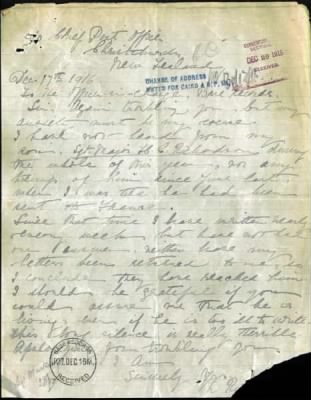 Chief Post Office
Christchurch
New Zealand
Dec 17th 1916
CHANGE OF ADDRESS
NOTED FOR CARDS &
DEC 1916
RECEIVED
To the Officer in Base Records
Sir Again troubling you but my
anxiety must be my excuse.
I have not heard from my
son. Sgt Major H. S. Richardson during
the whole of this year, nor any
of him since June last
when I was he had been
sent to France.
Since that time I have written nearly
every week but have not had
one answer neither have my
letters been returned to me so
I conclude they have reached him
I should be grateful if you
could assure me that he is
living, even if he is too ill to write
this long silence is really terrible
Apologising for troubling you
I Am
Sincerely
DEC 1916
RECEIVED